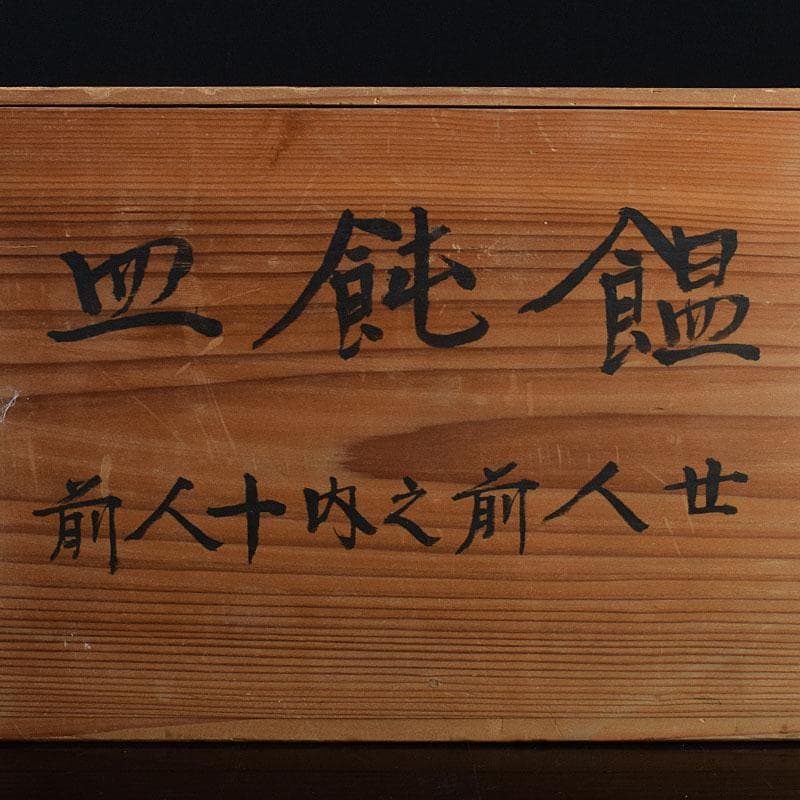 饂飩皿
廿人前之内十人前